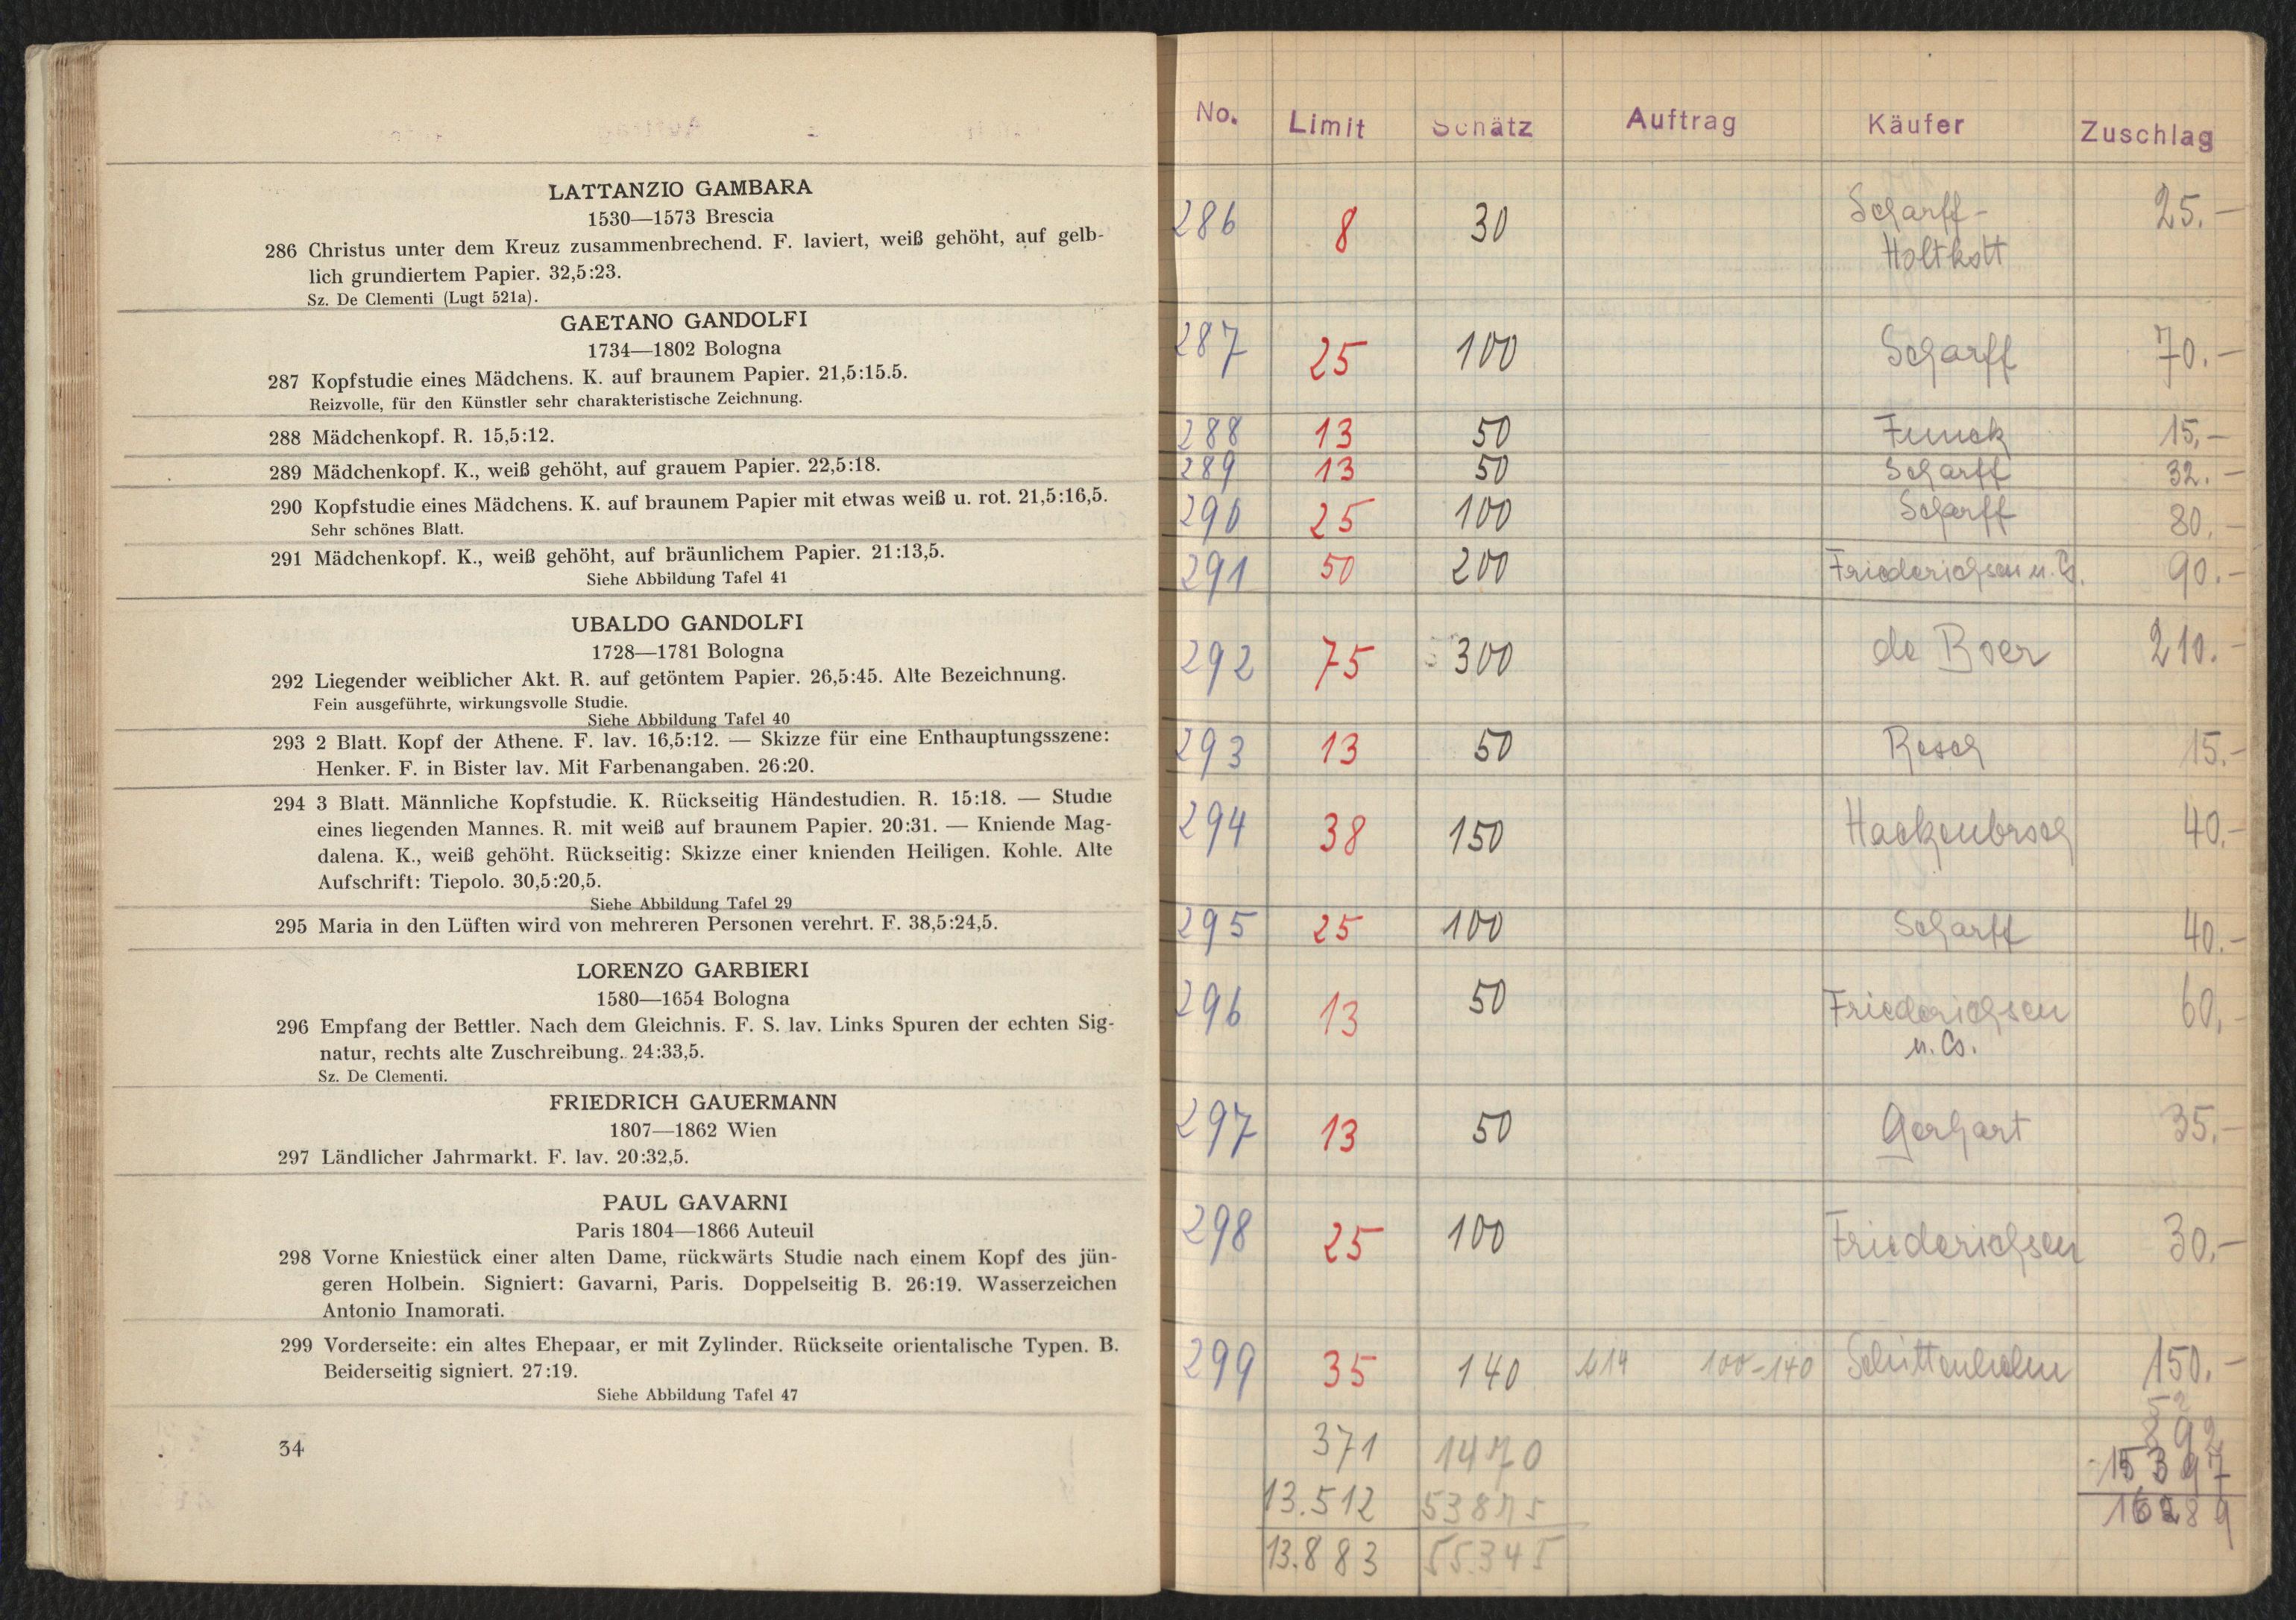 LATTANZIO GAMBARA
1530—1573 Brescia
286 Christus unter dem Kreuz zusammenbrechend. F. laviert, weiß gehöht, auf gelb-
lich grundiertem Papier. 32,5:23.
Sz. De Clementi (Lugt 521a).
GAETANO GANDOLFI
1734—1802 Bologna
287 Kopfstudie eines Mädchens. K. auf braunem Papier. 21,5:15.5.
Reizvolle, für den Künstler sehr charakteristische Zeichnung.
288 Mädchenkopf. R. 15,5:12.
289 Mädchenkopf. K., weiß gehöht, auf grauem Papier. 22,5:18.
290 Kopfstudie eines Mädchens. K. auf braunem Papier mit etwas weiß u. rot. 21,5:16,5.
Sehr schönes Blatt.
291 Mädchenkopf. K., weiß gehöht, auf bräunlichem Papier. 21:13,5.
Siehe Abbildung Tafel 41
UBALDO GANDOLFI
1728—1781 Bologna
292 Liegender weiblicher Akt. R. auf getöntem Papier. 26,5:45. Alte Bezeichnung.
Fein ausgeführte, wirkungsvolle Studie.
Siehe Abbildung Tafel 40
293 2 Blatt. Kopf der Athene. F. lav. 16,5:12. — Skizze für eine Enthauptungsszene:
Henker. F. in Bister lav. Mit Farbenangaben. 26:20.
294 3 Blatt. Männliche Kopfstudie. K. Rückseitig Händestudien. R. 15:18. — Studie
eines liegenden Mannes. R. mit weiß auf braunem Papier. 20:31. — Kniende Mag-
dalena. K., weiß gehöht. Rückseitig: Skizze einer knienden Heiligen. Kohle. Alte
Aufschrift: Tiepolo. 30,5:20,5.
Siehe Abbildung Tafel 29
295 Maria in den Lüften wird von mehreren Personen verehrt. F. 38,5:24,5.
LORENZO GARBIERI
1580—1654 Bologna
296 Empfang der Bettler. Nach dem Gleichnis. F. S. lav. Links Spuren der echten Sig-
natur, rechts alte Zuschreibung. 24:33,5.
Sz. De Clementi.
FRIEDRICH GAUERMANN
1807—1862 Wien
297 Ländlicher Jahrmarkt. F. lav. 20:32,5.
PAUL GAVARNI
Paris 1804—1866 Auteuil
298 Vorne Kniestück einer alten Dame, rückwärts Studie nach einem Kopf des jün-
geren Holbein. Signiert: Gavarni, Paris. Doppelseitig B. 26:19. Wasserzeichen
Antonio Inamorati.
299 Vorderseite: ein altes Ehepaar, er mit Zylinder. Rückseite orientalische Typen. B.
Beiderseitig signiert. 27:19.
Siehe Abbildung Tafel 47
34
No. Limit Schätz Auftrag Käufer Zuschlag
286 8 30 Scharff- 25.—
Holtkott
287 25 100 Scharff 70.—
288 13 50 Funck 15,—
289 13 50 Scharff 32.—
290 25 100 Scharff 80.—
291 50 200 Friederichsen u. Co. 90.—
292 75 300 de Boer 210.—
293 13 50 Resch 15.—
294 38 150 Hackenbroch 40.—
295 25 100 Scharff 40.—
296 13 50 Friederichsen 60,—
u. Co.
297 13 50 Gerhart 35.—
298 25 100 Friederichsen 30.—
299 35 140 100-140 150.—
371 1470 892
13.512 53875 15397
13.883 55.345 16289